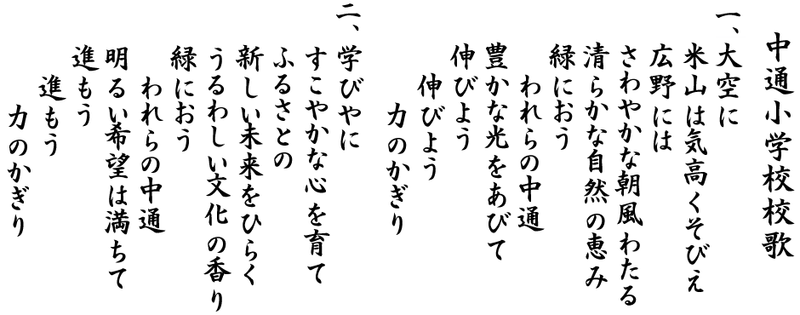 中通小学校校歌
一、大空に
米山は気高くそびえ
広野には
さわやかな朝風わたる
清らかな自然の恵み
緑におう
われらの中通
豊かな光をあびて
伸びよう
伸びよう
力のかぎり
二、学びやに
すこやかな心を育て
ふるさとの
新しい未来をひらく
うるわしい文化の香り
緑におう
われらの中通
明るい希望は満ちて
進もう
進もう
力のかぎり